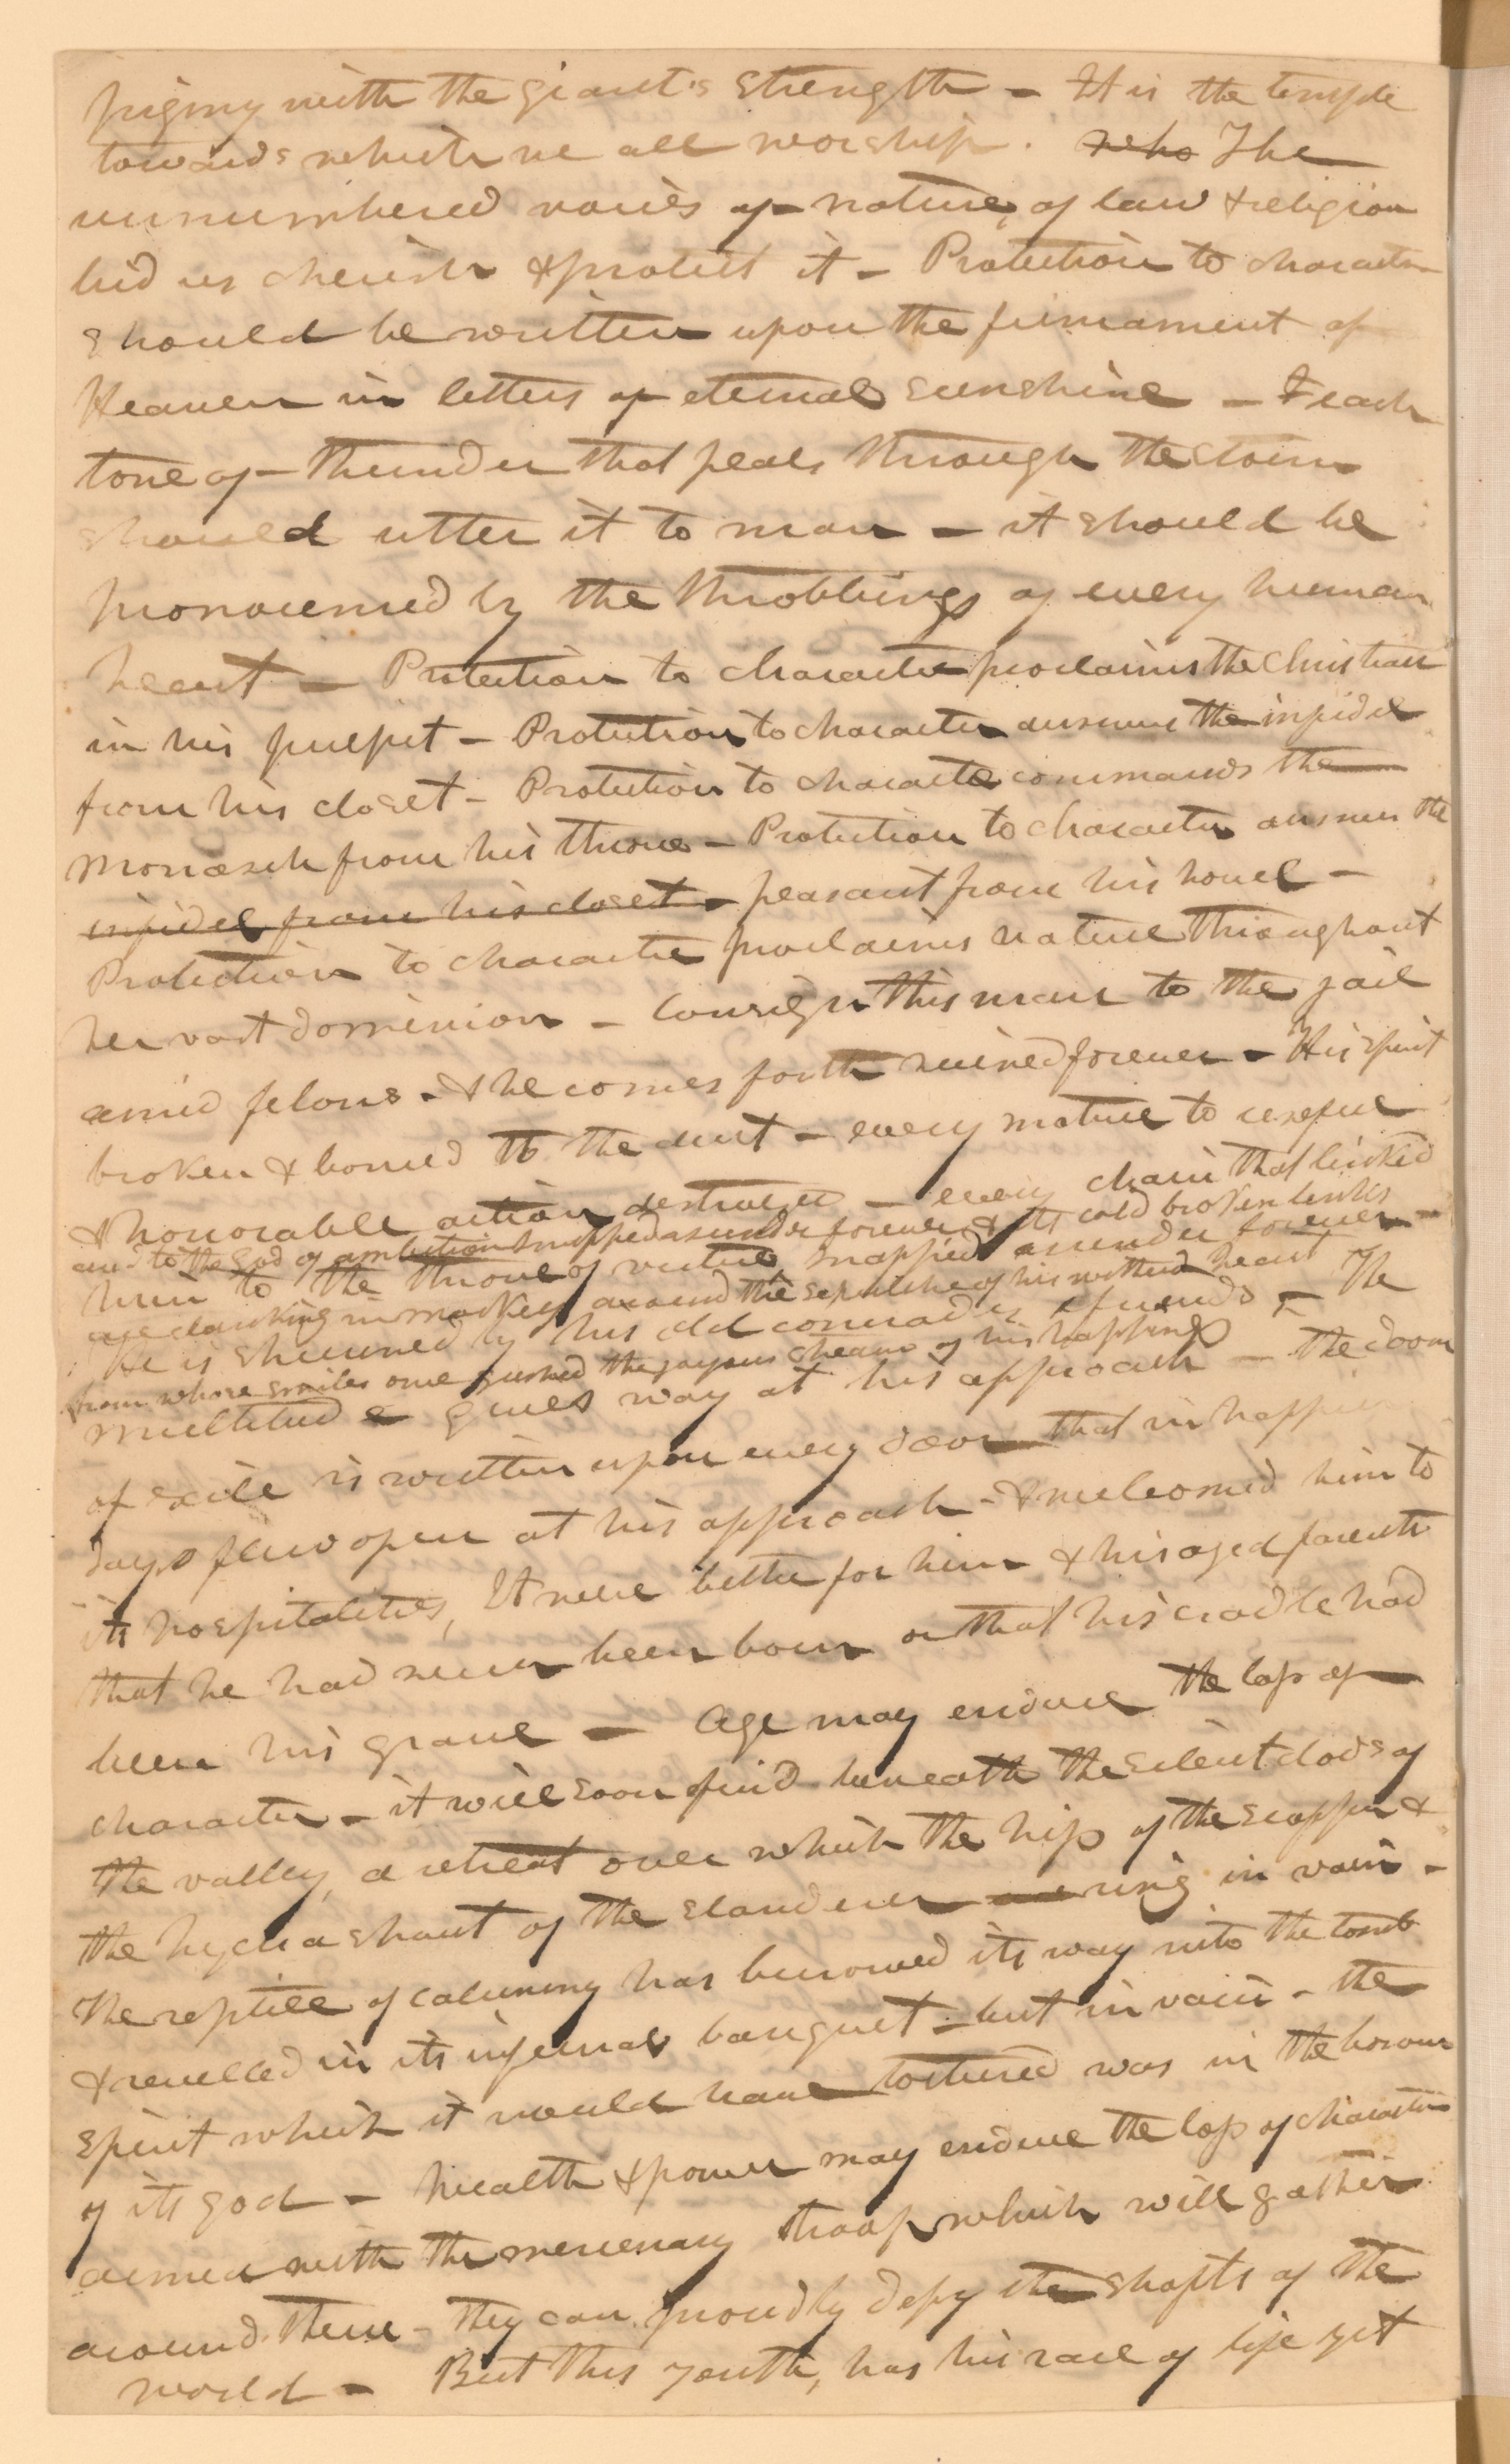 pigmy with the giant's strength - It is the temple
towards which we all worship. who The
unnumbered voices of nature, of law & religion
bid us cherish & protect it - Protection to character
should be written upon the firmament of
Heaven in letters of eternal sunshine - & each
tone of thunder that peals through the storm
should utter it to man - it should be
pronounced by the throbbings of every human
heart - Protection to character proclaims the Christian
in his pulpit - Protection to character answers the infidel
from his closet - Protection to character commands the
monarch from his throne - Protection to character answers the
infidel from his closet - peasant from his hovel -
Protection to character proclaims nature throughout
her vast dominion - Consign this man to the jail
amid felons - & he comes forth ruined forever - His spirit
broken & bowed to the dust - every motive to useful
& honorable action destroyed - every chain that linked
and to the God of ambition snapped asunder forever & its cold broken links
him to the throne of virtue snapped asunder forever -
are clanking in mockery around the sepulchre of his withered heart
He is shunned by his old comrades & friends - The
from whose smiles once gushed the joyous streams of his happiness
multitude gives way at his approach - the doom
of exile is written upon every door that in happier
days flew open at his approach - & welcomed him to
its hospitalities, It were better for him & his aged parents
that he had never been born or that his cradle had
been his grave - Age may endure the loss of
character - it will soon find beneath the silent clods of
the valley, a retreat over which the hiss of the scoffer &
the hydra shout of the slanderer ring in vain -
The reptile of calumny has burrowed its way into the tomb
& revelled in its infernal banquet - but in vain - the
spirit which it would have tortured was in the bosom
of its god - Wealth & power may endure the loss of character
armed with the mercenary troop which will gather
around them - they can proudly defy the shafts of the
world - But this youth, has his race of life yet